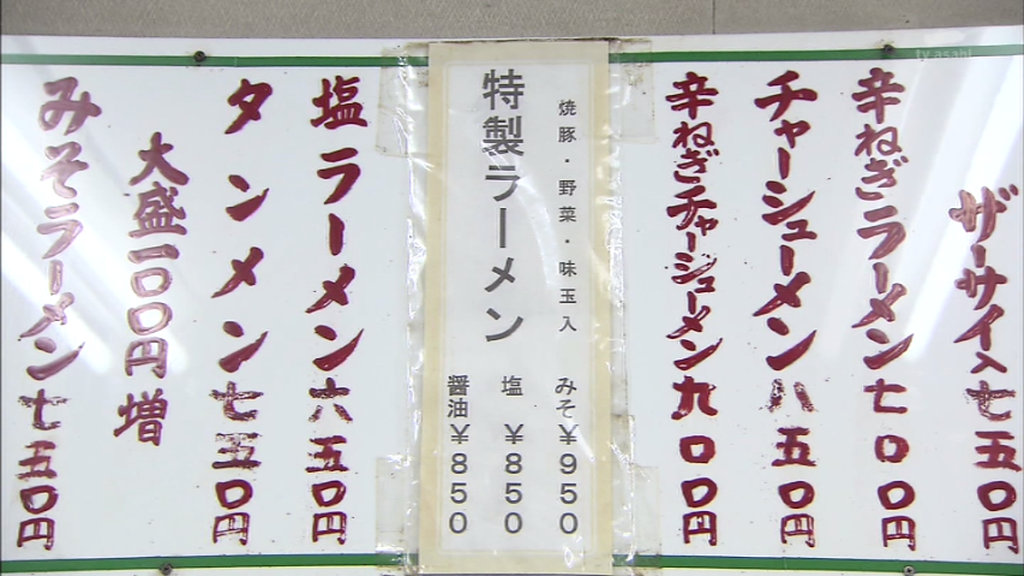 tv asahi
ザーサイ入七五〇円
辛ねぎラーメン七〇〇円
チャーシューメン八五〇円
辛ねぎチャーシューメン九〇〇円
焼豚・野菜・味玉入
特製ラーメン
みそ¥950
塩¥850
醤油¥850
塩ラーメン六五〇円
タンメン七五〇円
大盛一〇〇円増
みそラーメン七五〇円